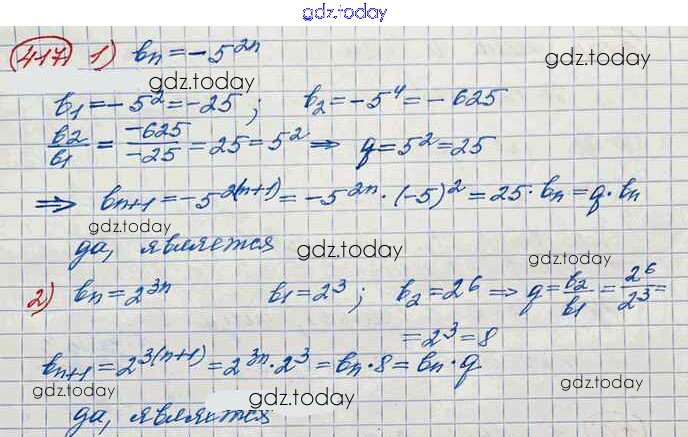 gdz.today
417. 1) bₙ = -5²ⁿ
gdz.today
gdz.today
b₁ = -5² = -25; b₂ = -5⁴ = -625
gdz.today
b₂/b₁ = -625/-25 = 25 = 5² ⇒ q = 5² = 25
gdz.today
⇒ bₙ₊₁ = -5²⁽ⁿ⁺¹⁾ = -5²ⁿ · (-5)² = 25 · bₙ = q · bₙ
gdz.today
да, является
gdz.today
gdz.today
2) bₙ = 2³ⁿ b₁ = 2³; b₂ = 2⁶ ⇒ q = b₂/b₁ = 2⁶/2³ =
= 2³ = 8
bₙ₊₁ = 2³⁽ⁿ⁺¹⁾ = 2³ⁿ · 2³ = bₙ · 8 = bₙ · q
gdz.today
gdz.today
gdz.today
да, является